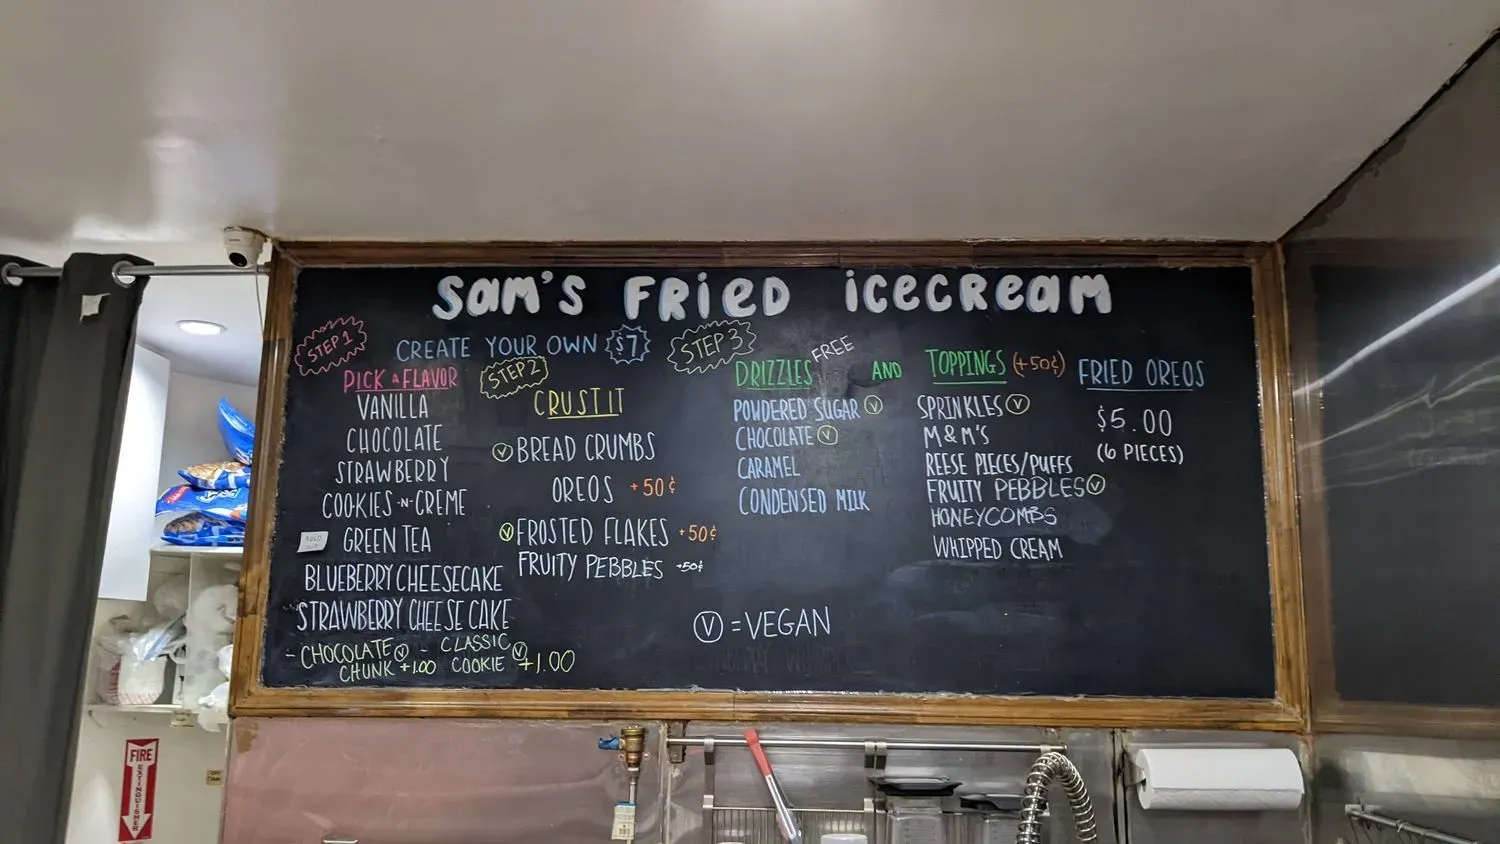 Sam's Fried icecream
STEP 1
CREATE YOUR OWN $7
PICK A FLAVOR
VANILLA
CHOCOLATE
STRAWBERRY
COOKIES-N-CREME
SOLD OUT
GREEN TEA
BLUEBERRY CHEESECAKE
STRAWBERRY CHEESECAKE
- CHOCOLATE Ⓥ
CHUNK +1.00
- CLASSIC Ⓥ
COOKIE +1.00
STEP 2
CRUST IT
Ⓥ BREAD CRUMBS
OREOS +50¢
Ⓥ FROSTED FLAKES +50¢
FRUITY PEBBLES +50¢
STEP 3
DRIZZLES FREE AND TOPPINGS (+50¢)
POWDERED SUGAR Ⓥ
CHOCOLATE Ⓥ
CARAMEL
CONDENSED MILK
SPRINKLES Ⓥ
M&M'S
REESE PIECES/PUFFS
FRUITY PEBBLES Ⓥ
HONEYCOMBS
WHIPPED CREAM
FRIED OREOS
$5.00
(6 PIECES)
Ⓥ = VEGAN
FIRE
EXTINGUISHER